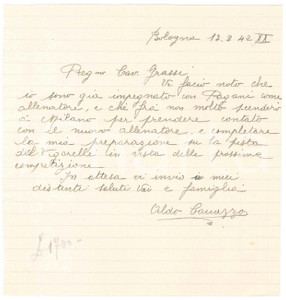 Bologna 12.3.42 XX
Pregmo Cav. Grassi
Vi facio noto che
io sono già impegnato con Pagani come
allenatore, e che frà non molto prenderò
a Milano per prendere contato
con le nuovo allenatore, e completare
la mia preparazione su la pista
del Vigorelli in vista delle prossime
competizione
In attesa vi invio i miei
distinti saluti Voi e famiglia
Aldo